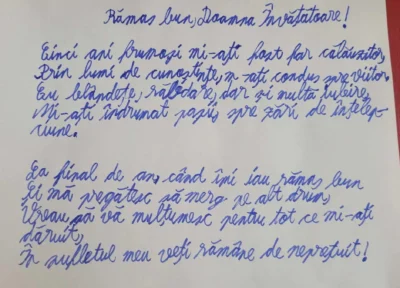 Rămas bun, Doamna Învățătoare!
Cinci ani frumoși mi-ați fost far călăuzitor,
Prin lumi de cunoștințe, m-ați condus spre viitor.
Cu blândețe, răbdare, dar și multă iubire,
Mi-ați îndrumat pașii, spre zări de înțelep-
ciune.
La final de an, când îmi iau rămas bun
Și mă pregătesc să merg pe alt drum,
Vreau să vă mulțumesc pentru tot ce mi-ați
dăruit,
În sufletul meu veți rămâne de neprețuit!